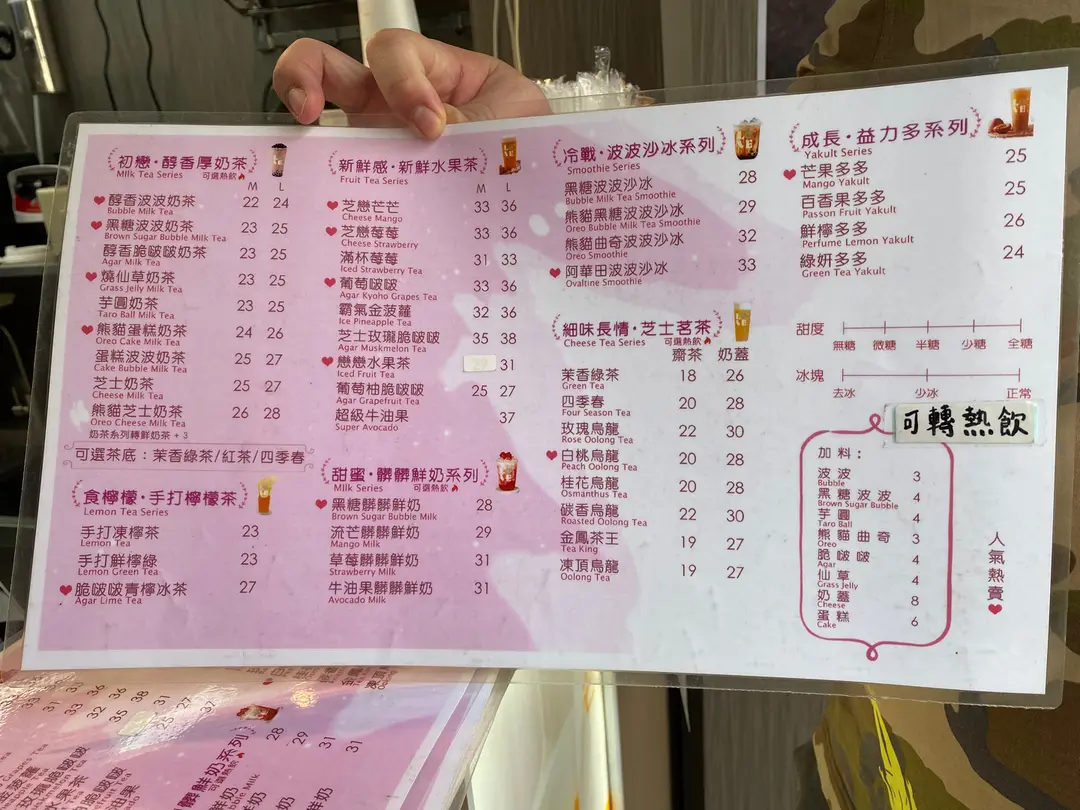 初戀·醇香厚奶茶
Milk Tea Series 可選熱飲
M L
醇香波波奶茶 22 24
Bubble Milk Tea
黑糖波波奶茶 23 25
Brown Sugar Bubble Milk Tea
醇香脆啵啵奶茶 23 25
Agar Milk Tea
燒仙草奶茶 23 25
Grass Jelly Milk Tea
芋圓奶茶 23 25
Taro Ball Milk Tea
熊貓蛋糕奶茶 24 26
Oreo Cake Milk Tea
蛋糕波波奶茶 25 27
Cake Bubble Milk Tea
芝士奶茶 25 27
Cheese Milk Tea
熊貓芝士奶茶 26 28
Oreo Cheese Milk Tea
奶茶系列轉鮮奶茶 + 3
可選茶底：茉香綠茶/紅茶/四季春
食檸檬·手打檸檬茶
Lemon Tea Series
手打凍檸茶 23
Lemon Tea
手打鮮檸綠 23
Lemon Green Tea
脆啵啵青檸冰茶 27
Agar Lime Tea
新鮮感·新鮮水果茶
Fruit Tea Series
M L
芝戀芒芒 33 36
Cheese Mango
芝戀莓莓 33 36
Cheese Strawberry
滿杯莓莓 31 33
Iced Strawberry Tea
葡萄啵啵 33 36
Agar Kyoho Grapes Tea
霸氣金菠蘿 32 36
Ice Pineapple Tea
芝士玫瓏脆啵啵 35 38
Agar Muskmelon Tea
戀戀水果茶 31
Iced Fruit Tea
葡萄柚脆啵啵 25 27
Agar Grapefruit Tea
超級牛油果 37
Super Avocado
甜蜜·髒髒鮮奶系列
Milk Series 可選熱飲
黑糖髒髒鮮奶 28
Brown Sugar Bubble Milk
流芒髒髒鮮奶 29
Mango Milk
草莓髒髒鮮奶 31
Strawberry Milk
牛油果髒髒鮮奶 31
Avocado Milk
冷戰·波波沙冰系列
Smoothie Series
黑糖波波沙冰 28
Bubble Milk Tea Smoothie
熊貓黑糖波波沙冰 29
Oreo Bubble Milk Tea Smoothie
熊貓曲奇波波沙冰 32
Oreo Smoothie
阿華田波波沙冰 33
Ovaltine Smoothie
細味長情·芝士茗茶
Cheese Tea Series 可選熱飲
齋茶 奶蓋
茉香綠茶 18 26
Green Tea
四季春 20 28
Four Season Tea
玫瑰烏龍 22 30
Rose Oolong Tea
白桃烏龍 20 28
Peach Oolong Tea
桂花烏龍 20 28
Osmanthus Tea
碳香烏龍 22 30
Roasted Oolong Tea
金鳳茶王 19 27
Tea King
凍頂烏龍 19 27
Oolong Tea
成長·益力多系列
Yakult Series
芒果多多 25
Mango Yakult
百香果多多 25
Passon Fruit Yakult
鮮檸多多 26
Perfume Lemon Yakult
綠妍多多 24
Green Tea Yakult
甜度
無糖 微糖 半糖 少糖 全糖
冰塊
去冰 少冰 正常
可轉熱飲
加料：
波波 3
Bubble
黑糖波波 4
Brown Sugar Bubble
芋圓 4
Taro Ball
熊貓曲奇 3
Oreo
脆啵啵 4
Agar
仙草 4
Grass Jelly
奶蓋 8
Cheese
蛋糕 6
Cake
人氣熱賣